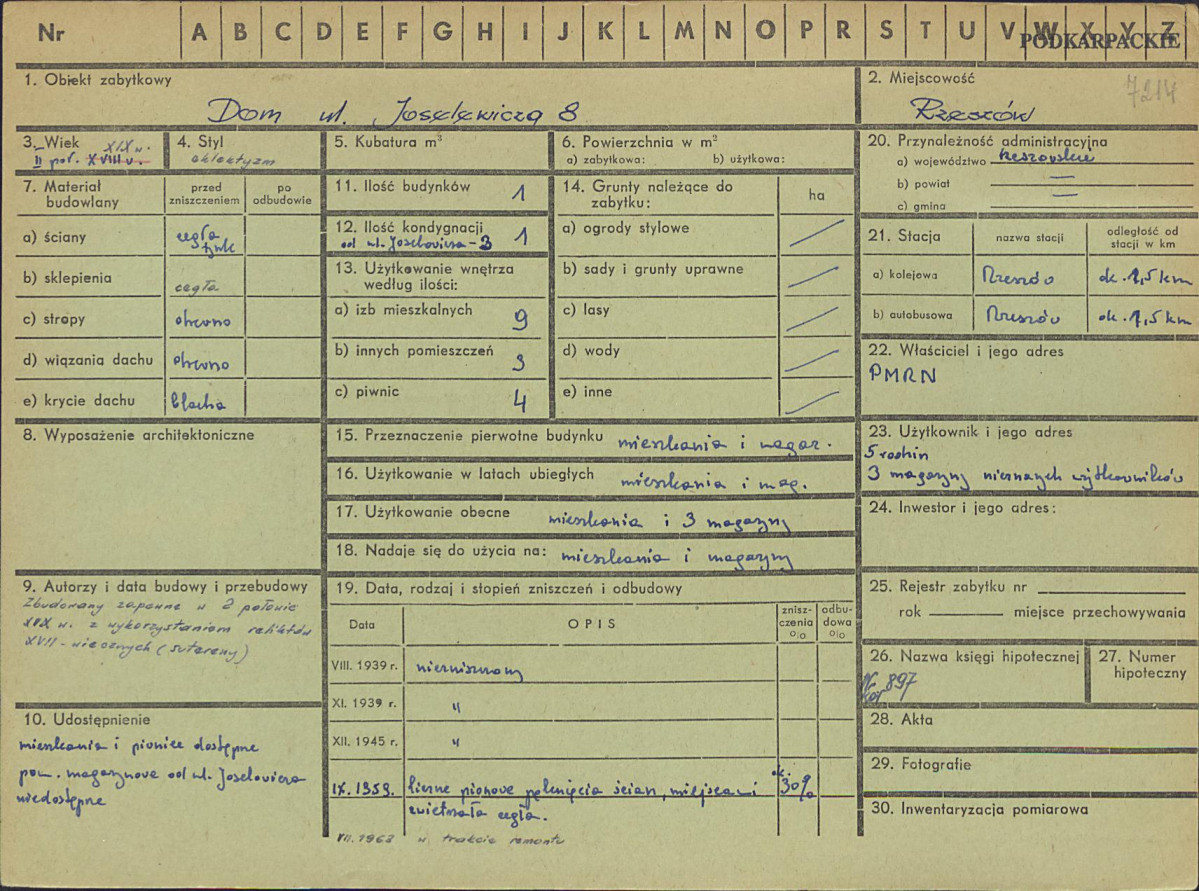 Nr A B C D E F G H I J K L M N O P R S T U V W X Y Z
PODKARPACKIE
1. Obiekt zabytkowy
Dom ul. Joselewicza 8
2. Miejscowość
7214
Rzeszów
3. Wiek XIX w.
II poł. XVIII w.
4. Styl
eklektyzm
5. Kubatura m³
6. Powierzchnia w m²
a) zabytkowa: b) użytkowa:
7. Materiał budowlany
przed zniszczeniem
po odbudowie
a) ściany cegła tynk
b) sklepienia cegła
c) stropy drewno
d) wiązania dachu drewno
e) krycie dachu blacha
8. Wyposażenie architektoniczne
9. Autorzy i data budowy i przebudowy
Zbudowany zapewne w 2 połowie
XIX w. z wykorzystaniem reliktów
XVII-wiecznych (sutereny)
10. Udostępnienie
mieszkania i piwnice dostępne
pom. magazynowe od ul. Joselewicza
niedostępne
11. Ilość budynków 1
12. Ilość kondygnacji 1
od ul. Joselewicza - 3
13. Użytkowanie wnętrza
według ilości:
a) izb mieszkalnych 9
b) innych pomieszczeń 3
c) piwnic 4
14. Grunty należące do
zabytku:
ha
a) ogrody stylowe
b) sady i grunty uprawne
c) lasy
d) wody
e) inne
15. Przeznaczenie pierwotne budynku mieszkania i magaz.
16. Użytkowanie w latach ubiegłych mieszkania i mag.
17. Użytkowanie obecne mieszkania i 3 magazyny
18. Nadaje się do użycia na: mieszkania i magazyny
19. Data, rodzaj i stopień zniszczeń i odbudowy
Data
OPIS
zniszczenia o/o
odbudowa o/o
VIII. 1939 r. niezniszczony
XI. 1939 r. "
XII. 1945 r. "
IX. 1959. liczne pionowe pęknięcia ścian, miejscami ok. 30%
zwietrzała cegła.
VII. 1963 w trakcie remontu
20. Przynależność administracyjna
a) województwo rzeszowskie
b) powiat —
c) gmina —
21. Stacja
nazwa stacji
odległość od
stacji w km
a) kolejowa Rzeszów ok. 1,5 km
b) autobusowa Rzeszów ok. 1,5 km
22. Właściciel i jego adres
PMRN
23. Użytkownik i jego adres
5 rodzin
3 magazyny nieznanych użytkowników
24. Inwestor i jego adres:
25. Rejestr zabytku nr
rok miejsce przechowywania
26. Nazwa księgi hipotecznej
Nr 897
27. Numer
hipoteczny
28. Akta
29. Fotografie
30. Inwentaryzacja pomiarowa